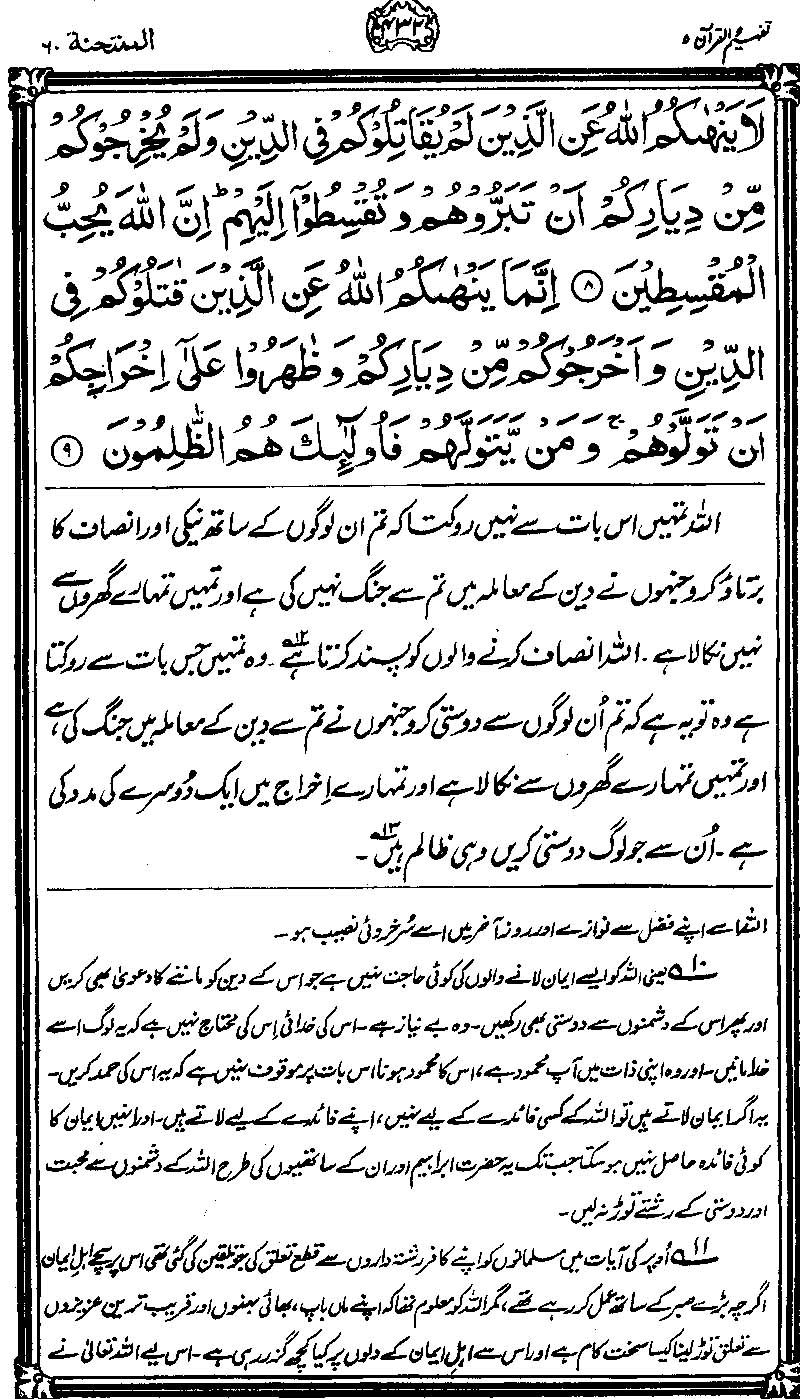 تفہیم القرآن ۵
۴۳۲
الممتحنة ۶۰
لَا يَنْهٰىكُمُ اللّٰهُ عَنِ الَّذِيْنَ لَمْ يُقَاتِلُوْكُمْ فِى الدِّيْنِ وَلَمْ يُخْرِجُوْكُمْ
مِّنْ دِيَارِكُمْ اَنْ تَبَرُّوْهُمْ وَتُقْسِطُوْٓا اِلَيْهِمْ ؕ اِنَّ اللّٰهَ يُحِبُّ
الْمُقْسِطِيْنَ ۸ اِنَّمَا يَنْهٰىكُمُ اللّٰهُ عَنِ الَّذِيْنَ قٰتَلُوْكُمْ فِى
الدِّيْنِ وَاَخْرَجُوْكُمْ مِّنْ دِيَارِكُمْ وَظٰهَرُوْا عَلٰٓى اِخْرَاجِكُمْ
اَنْ تَوَلَّوْهُمْ ۚ وَمَنْ يَّتَوَلَّهُمْ فَاُولٰٓئِكَ هُمُ الظّٰلِمُوْنَ ۹
اللہ تمہیں اس بات سے نہیں روکتا کہ تم ان لوگوں کے ساتھ نیکی اور انصاف کا
برتاؤ کرو جنہوں نے دین کے معاملہ میں تم سے جنگ نہیں کی ہے اور تمہیں تمہارے گھروں سے
نہیں نکالا ہے۔ اللہ انصاف کرنے والوں کو پسند کرتا ہے۱۲۔ وہ تمہیں جس بات سے روکتا
ہے وہ تو یہ ہے کہ تم اُن لوگوں سے دوستی کرو جنہوں نے تم سے دین کے معاملہ میں جنگ کی ہے،
اور تمہیں تمہارے گھروں سے نکالا ہے اور تمہارے اِخراج میں ایک دُوسرے کی مدد کی
ہے۔ اُن سے جو لوگ دوستی کریں وہی ظالم ہیں۱۳۔
اللہ اسے اپنے فضل سے نوازے اور روز آخر میں اسے سُرخروئی نصیب ہو۔
۱۰ یعنی اللہ کو ایسے ایمان لانے والوں کی کوئی حاجت نہیں ہے جو اس کے دین کو ماننے کا دعویٰ بھی کریں
اور پھر اس کے دشمنوں سے دوستی بھی رکھیں۔ وہ بے نیاز ہے۔ اس کی خدائی اِس کی محتاج نہیں ہے کہ یہ لوگ اسے
خدا مانیں۔ اور وہ اپنی ذات میں آپ محمود ہے، اس کا محمود ہونا اس بات پر موقوف نہیں ہے کہ یہ اس کی حمد کریں۔
یہ اگر ایمان لاتے ہیں تو اللہ کے کسی فائدے کے لیے نہیں، اپنے فائدے کے لیے لاتے ہیں۔ اور انہیں ایمان کا
کوئی فائدہ حاصل نہیں ہو سکتا جب تک یہ حضرت ابراہیم اور ان کے ساتھیوں کی طرح اللہ کے دشمنوں سے محبت
اور دوستی کے رشتے توڑ نہ لیں۔
۱۱ اُوپر کی آیات میں مسلمانوں کو اپنے کافر رشتہ داروں سے قطع تعلق کی جو تلقین کی گئی تھی اس پر سچے اہلِ ایمان
اگرچہ بڑے صبر کے ساتھ عمل کر رہے تھے، مگر اللہ کو معلوم تھا کہ اپنے ماں باپ، بھائی بہنوں اور قریب ترین عزیزوں
سے تعلق توڑ لینا کیسا سخت کام ہے اور اس سے اہلِ ایمان کے دلوں پر کیا کچھ گزر رہی ہے۔ اس لیے اللہ تعالیٰ نے